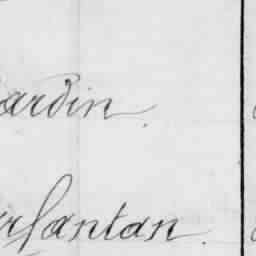 ardin.
rfantan.